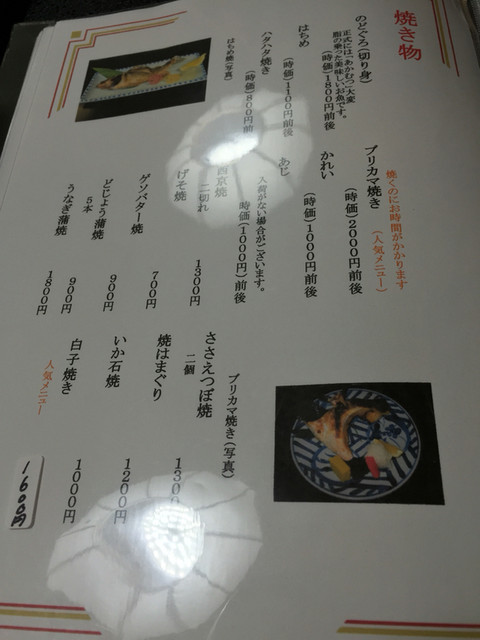 焼き物
のどぐろ(切り身)
正式には「あかむつ」大変
脂の乗った美味しいお魚です。
(時価)1800円前後
はちめ
(時価)1100円前後
ハタハタ焼き
(時価)800円前
はちめ焼(写真)
焼くのにお時間がかかります
(人気メニュー)
ブリカマ焼き
(時価)2000円前後
かれい
(時価)1000円前後
あじ
入荷がない場合がございます。
(時価)(1000円)前後
西京焼
二切れ
1300円
げそ焼
700円
ゲソバター焼
900円
どじょう蒲焼
5本
900円
うなぎ蒲焼
1800円
ブリカマ焼き(写真)
ささえつぼ焼
二個
焼はまぐり
1300
いか石焼
1200円
白子焼き
1000円
人気メニュー
1600円